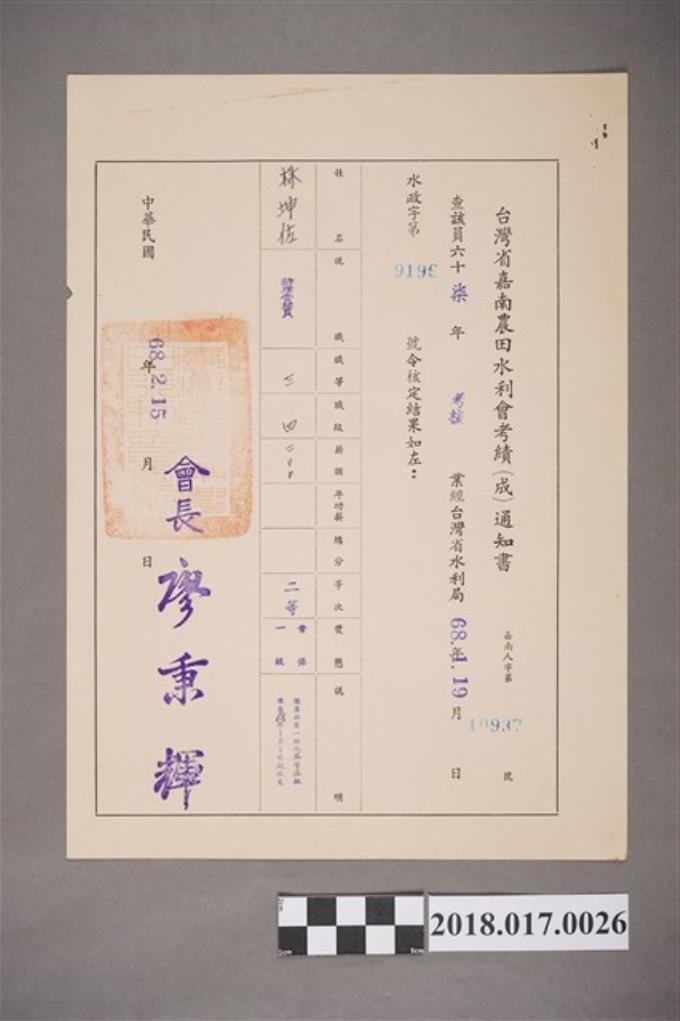 台灣省嘉南農田水利會考績(成)通知書
嘉南人字第10937號
查該員六十柒年考核業經台灣省水利局68年1.19月日
水政字第9196號令核定結果如左：
姓名 現職 職等 職級 薪額 年功薪 總分 等次 獎懲 說明
林坤佐 助理管理員 三 四 二等 晉俸一級
中華民國68年2.15月日
會長廖秉輝
2018.017.0026
5cm